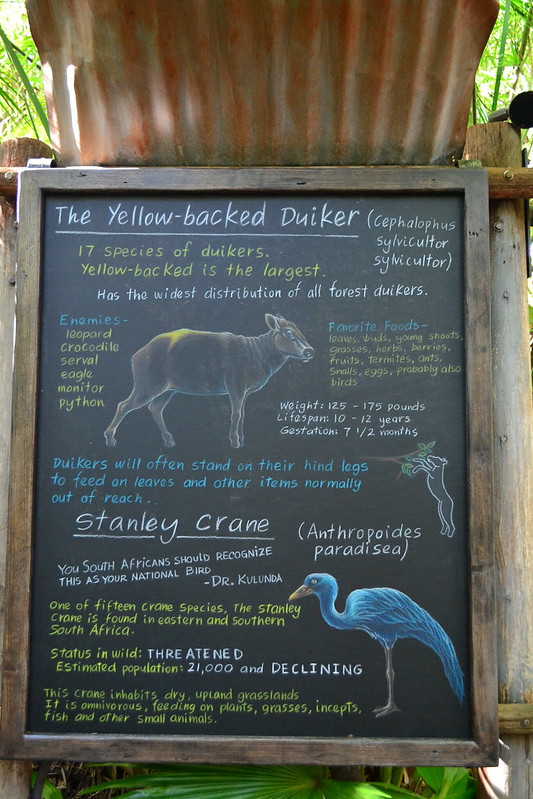 The Yellow-backed Duiker (Cephalophus
sylvicultor
sylvicultor)
17 species of duikers.
Yellow-backed is the largest.
Has the widest distribution of all forest duikers.
Enemies-
leopard
crocodile
serval
eagle
monitor
python
Favorite Foods-
leaves, buds, young shoots,
grasses, herbs, berries,
fruits, termites, ants,
snails, eggs, probably also
birds
Weight: 125 - 175 pounds
Lifespan: 10 - 12 years
Gestation: 7 1/2 months
Duikers will often stand on their hind legs
to feed on leaves and other items normally
out of reach.
Stanley Crane
(Anthropoides
paradisea)
YOU SOUTH AFRICANS SHOULD RECOGNIZE
THIS AS YOUR NATIONAL BIRD
-DR. KULUNDA
One of fifteen crane species, The Stanley
Crane is found in eastern and southern
South Africa.
Status in wild: THREATENED
Estimated population: 21,000 and DECLINING
This crane inhabits dry, upland grasslands
It is omnivorous, feeding on plants, grasses, incepts,
fish and other small animals.